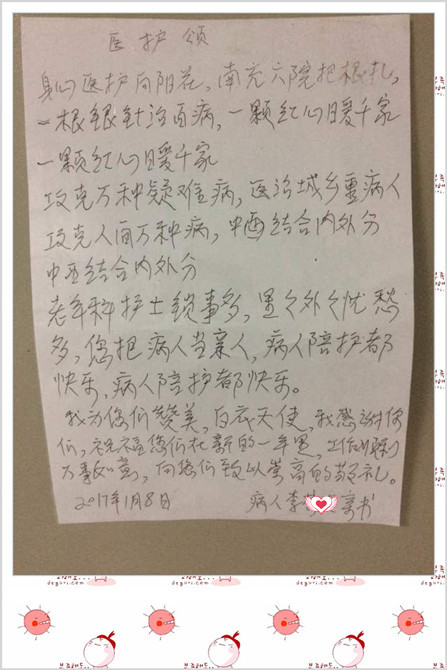 医护颂
身心医护向阳花，南充六院把根扎，
一根银针治百病，一颗红心暖千家
一颗红心暖千家
攻克万种疑难病，医治城乡重病人
攻克人间万种病，中西结合内外分
中西结合内外分
老年科护士锁事多，里々外々忧愁
多，您把病人当亲人，病人陪护都
快乐，病人陪护都快乐。
我为您们赞美，白衣天使，我感谢你
们，祝福您们在新的一年里，工作顺利
万事如意，向您们致以崇高的敬礼。
2017年1月8日 病人李 亲书
deguri.com